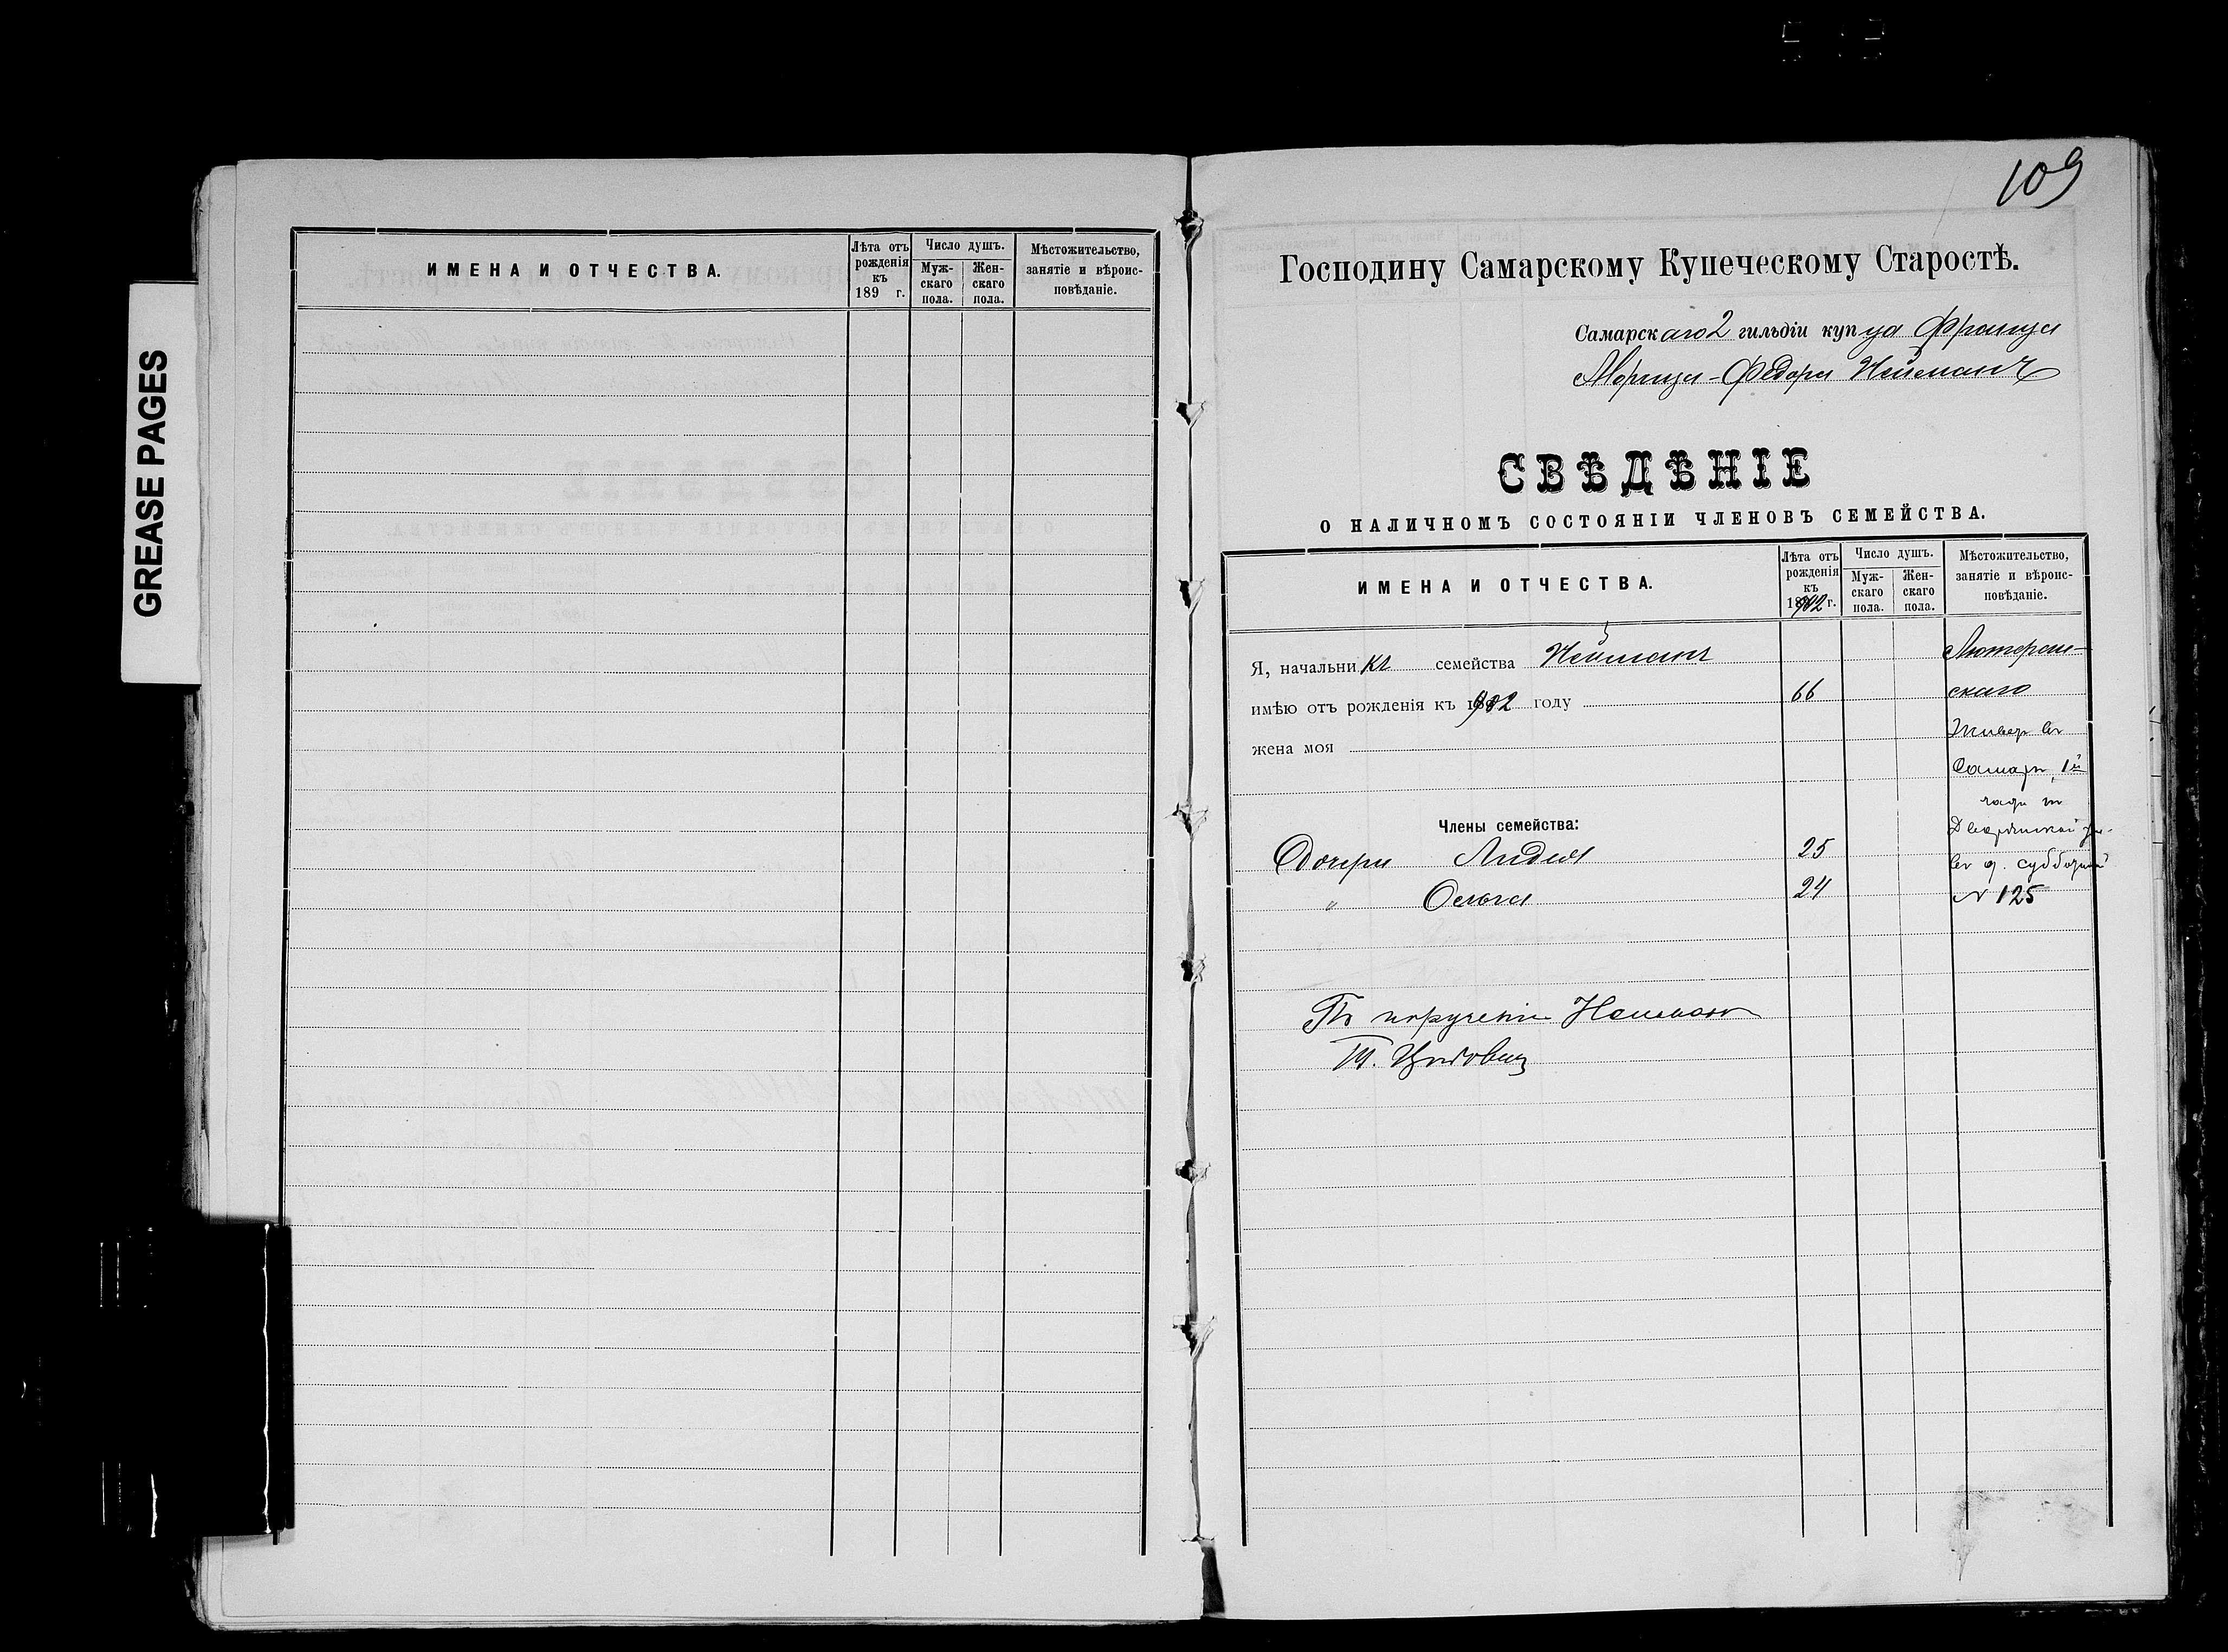 GREASE PAGES
ИМЕНА И ОТЧЕСТВА.
Лѣта отъ рожденія къ 189 г.
Число душъ.
Мужскаго пола.
Женскаго пола.
Мѣстожительство, занятіе и вѣроисповѣданіе.
109
Господину Самарскому Купеческому Старостѣ.
Самарскаго 2 гильдіи купца Франца
Морица-Федора Нейманъ
СВѢДѢНІЕ
О НАЛИЧНОМЪ СОСТОЯНІИ ЧЛЕНОВЪ СЕМЕЙСТВА.
ИМЕНА И ОТЧЕСТВА.
Лѣта отъ рожденія къ 1902 г.
Число душъ.
Мужскаго пола.
Женскаго пола.
Мѣстожительство, занятіе и вѣроисповѣданіе.
Я, начальникъ семейства Нейманъ
Лютеран-
имѣю отъ рожденія къ 1902 году 66
скаго
жена моя
Живет въ
Самарѣ, 1й
части
Члены семейства:
Дворянской ул.
Дочери Лидия 25
въ д. Субботиной
" Ольга 24
№ 125
По порученію Нейманъ